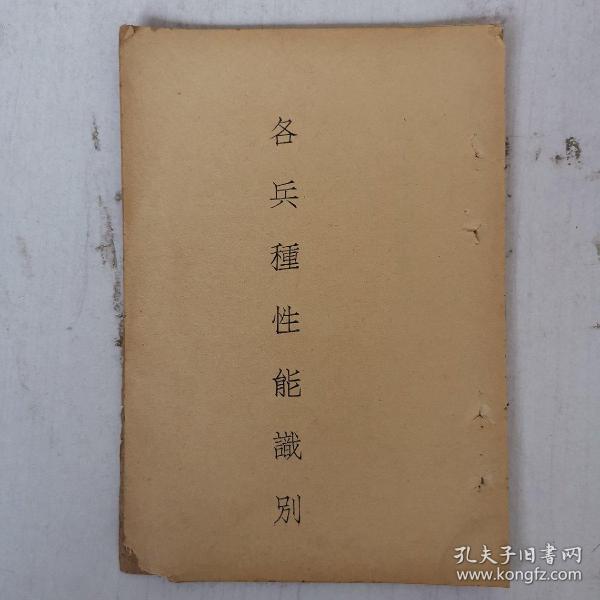 各兵種性能識別
孔夫子旧書网
www.kongfz.com